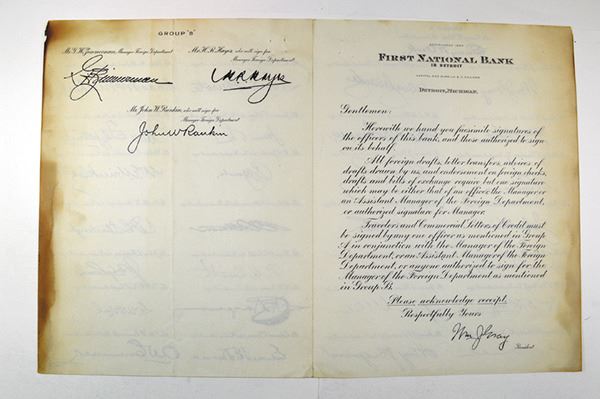 GROUP "B"
Mr G.W. Zimmerman, Manager Foreign Department
Zimmerman
Mr H.R. Hays, who will sign for
Manager Foreign Department
H.R. Hays
Mr John W. Rankin, who will sign for
Manager Foreign Department
John W Rankin
FIRST NATIONAL BANK
IN DETROIT
DETROIT, MICHIGAN.
Gentlemen:
Herewith we hand you facsimile signatures of
the officers of this bank, and those authorized to sign
on its behalf.
All foreign drafts, letter transfers, advices of
drafts drawn by us, and endorsement on foreign checks,
drafts and bills of exchange require but one signature
which may be either that of an officer, the Manager or
an Assistant Manager of the Foreign Department,
or authorized signature for Manager.
Travelers and Commercial Letters of Credit must
be signed by any one officer as mentioned in Group
A in conjunction with the Manager of the Foreign
Department, or an Assistant Manager of the Foreign
Department, or anyone authorised to sign for the
Manager of the Foreign Department as mentioned
in Group B.
Please acknowledge receipt.
Respectfully Yours
Wm J Gray
President